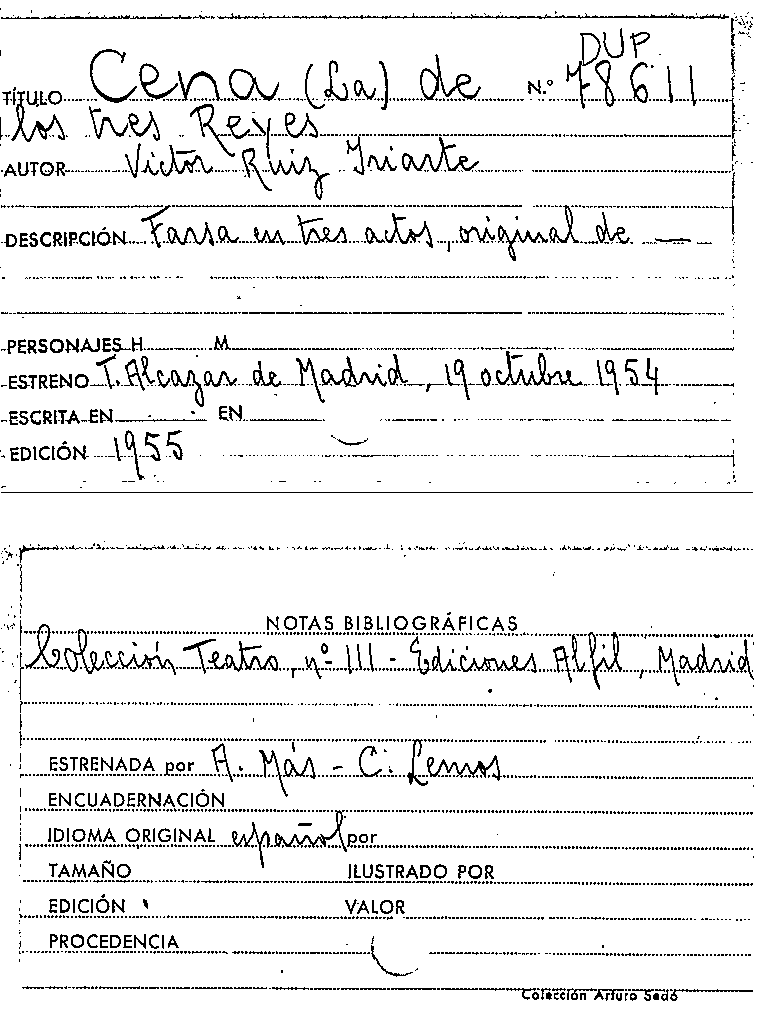 DUP.
TÍTULO Cena (La) de N.º 78611
los tres Reyes
AUTOR Victor Ruiz Iriarte
DESCRIPCIÓN Farsa en tres actos, original de —
PERSONAJES H M
ESTRENO T. Alcazar de Madrid, 19 octubre 1954
ESCRITA EN EN
EDICIÓN 1955
NOTAS BIBLIOGRÁFICAS
Colección Teatro, nº 111 - Ediciones Alfil, Madrid
ESTRENADA por A. Más - C. Lemos
ENCUADERNACIÓN
IDIOMA ORIGINAL español por
TAMAÑO ILUSTRADO POR
EDICIÓN VALOR
PROCEDENCIA
Colección Arturo Sedó